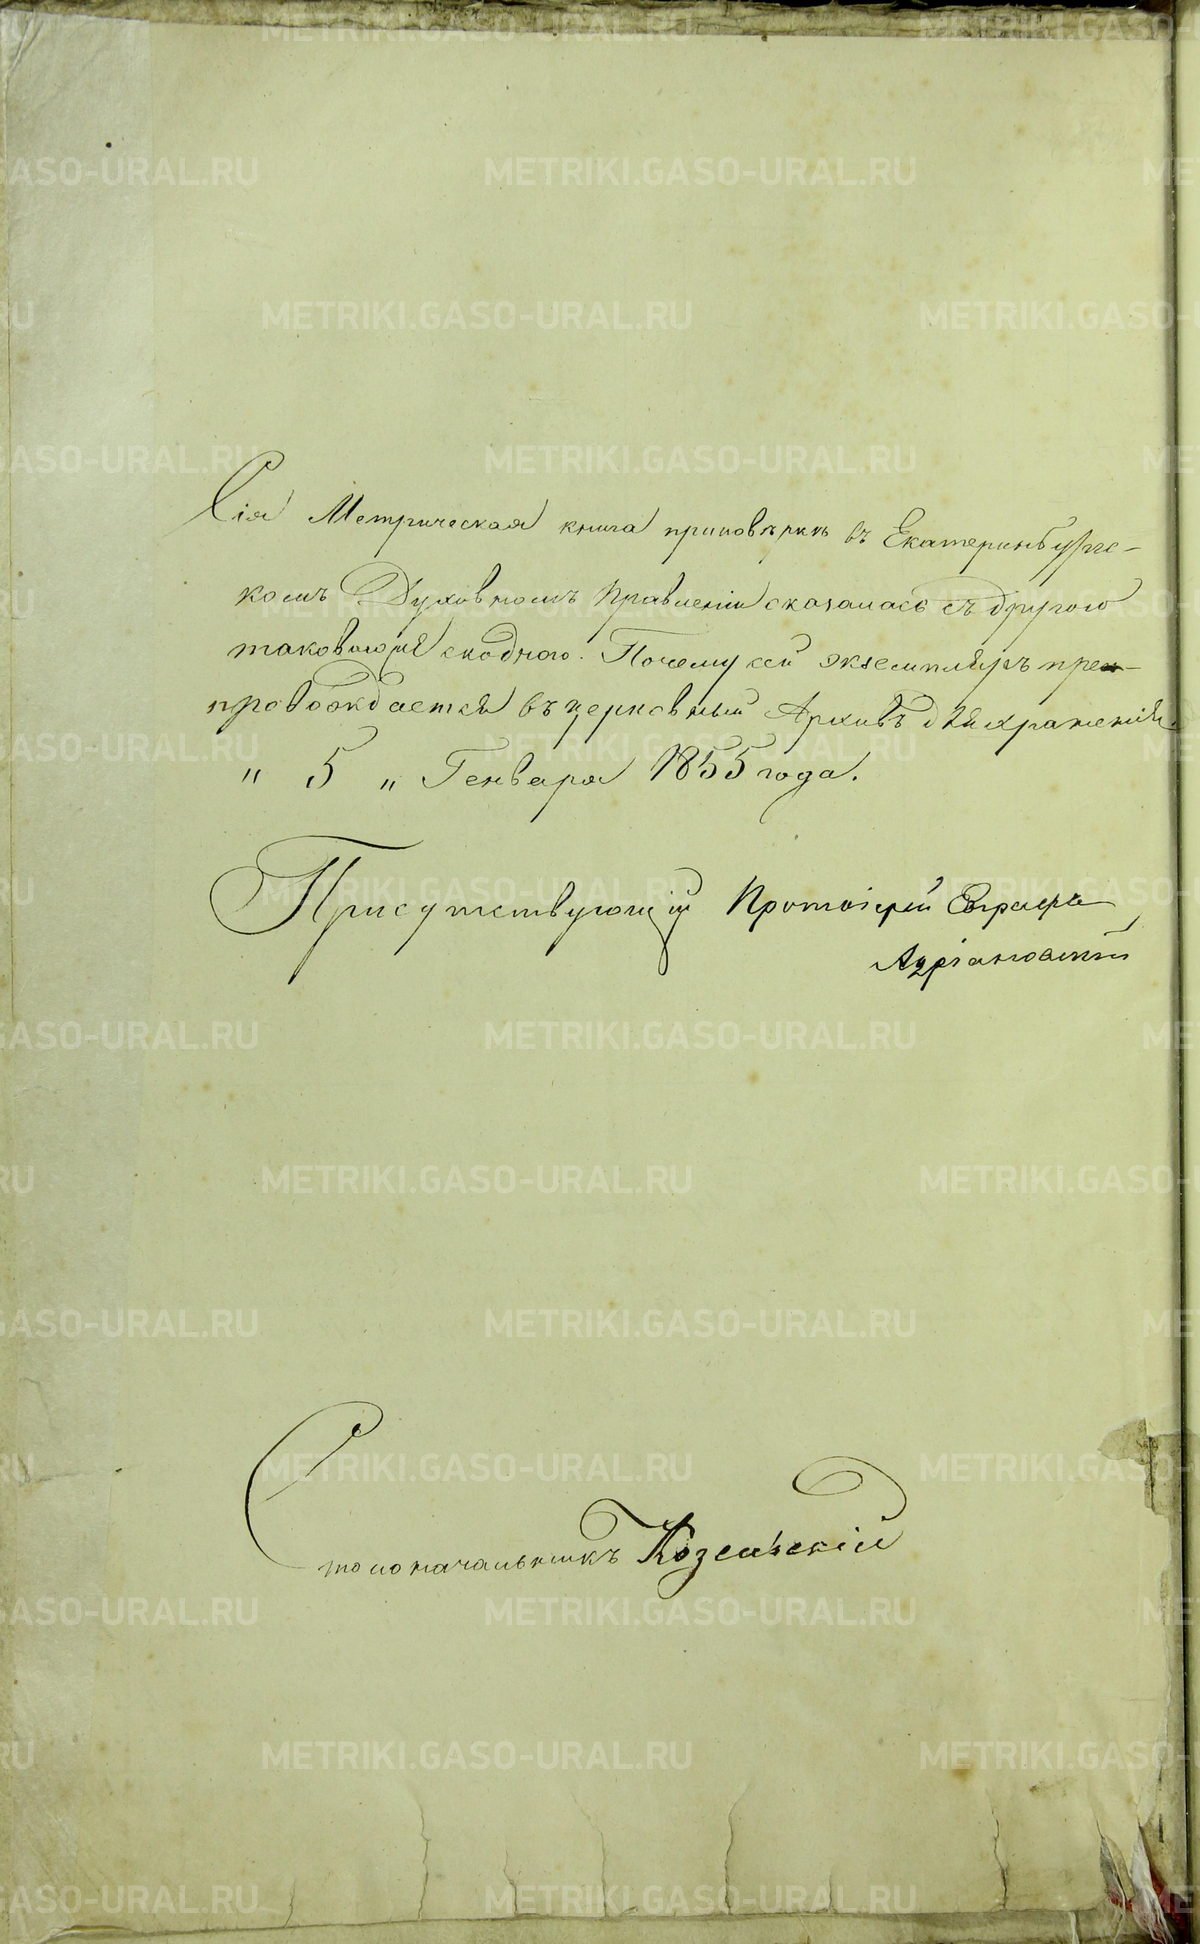 Сія Метрическая книга приповѣркѣ въ Екатеринбургс-
комъ Духовномъ Правленіи оказалась съ другою
таковоюже сходною. Почему сей экземпляръ пре-
провождается въ церковный Архивъ для храненія.
" 5 " Генваря 1855 года.
Присутствующій Протоіерей Евграфъ
Адріановскій
Столоначальникъ Козельскій